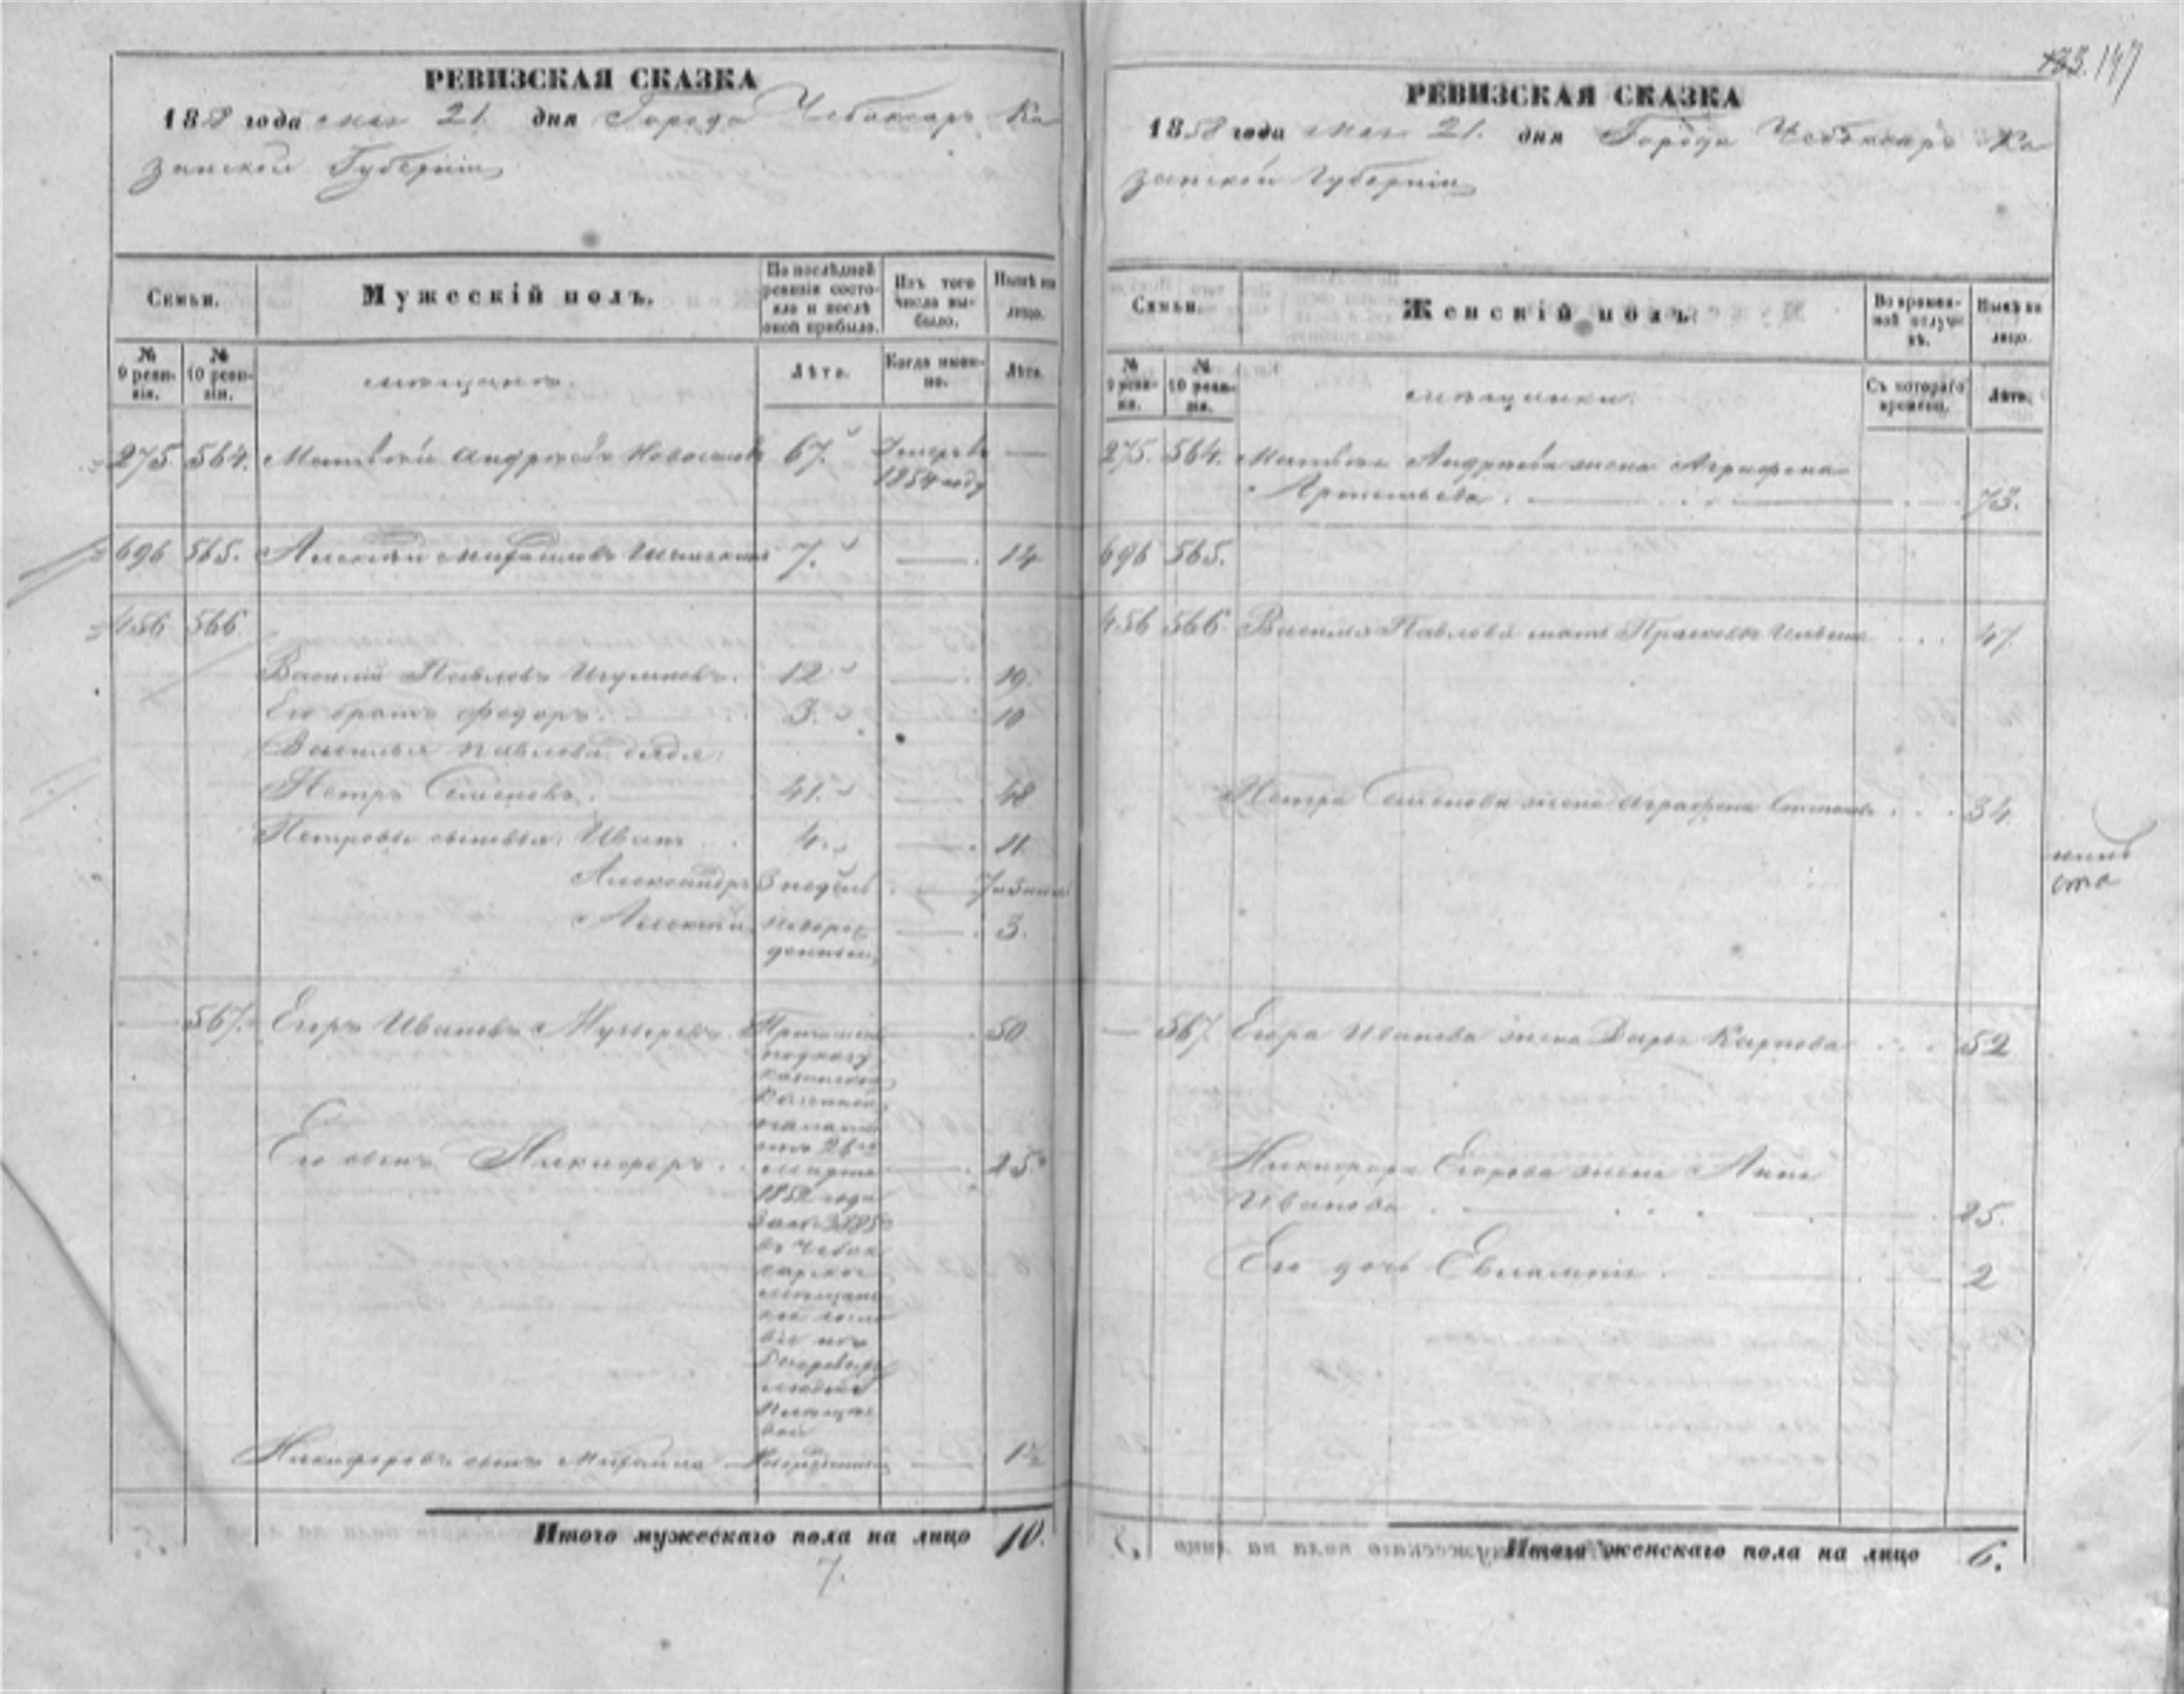 133. 147
РЕВИЗСКАЯ СКАЗКА
1858 года мая 21 дня Города Чебоксаръ Ка
занской Губерніи
Семьи.
Мужескій полъ.
По послѣдней ревизіи состояло и послѣ оной прибыло.
Изъ того числа выбыло.
Нынѣ на лицо.
№ 9 ревизіи.
№ 10 ревизіи.
мѣщане.
Лѣта.
Когда именно.
Лѣта.
275 564. Матвѣй Андреевъ 67. Умеръ въ —
1854 году
696 565. Алексѣй Михайловъ 7. — 14
456 566
Василій Павловъ Игумновъ. 12 — 19
Его братъ Федоръ. 3. — 10
Василья Павлова дядя:
Петръ Семеновъ. 41. — 48
Петровы сыновья: Иванъ 4. — 11.
Александръ 3 недѣль — 7
Алексѣй новорож — 3.
денный
567. Егоръ Ивановъ — 50
Казанской
Казенной
палаты
отъ 26го
Его сынъ Никифоръ. марта — 25
1852 года
въ Чебок
сарское
мѣщанс
кое
Никифоровъ сынъ Михайла Новорожденный — 1½
Итого мужескаго пола на лицо 10.
7.
РЕВИЗСКАЯ СКАЗКА
1858 года мая 21. дня Города Чебоксаръ Ка
занской Губерніи
Семьи.
Женскій полъ.
Во временной отлучкѣ.
Нынѣ на лицо.
№ 9 ревизіи.
№ 10 ревизіи.
мѣщанки.
Съ котораго времени.
Лѣта.
275. 564. Матвѣя Андреева жена Аграфена
Артемьева. 73.
696 565.
456 566 Василья Павлова мать Прасковья Ильина 47
Петра Семенова жена Аграфена Степанова 34
— 567. Егора Иванова жена Дарья Карпова 52
Никифора Егорова жена Анна
Иванова 25.
Его дочь Евлампія. 2
Итого женскаго пола на лицо 6.